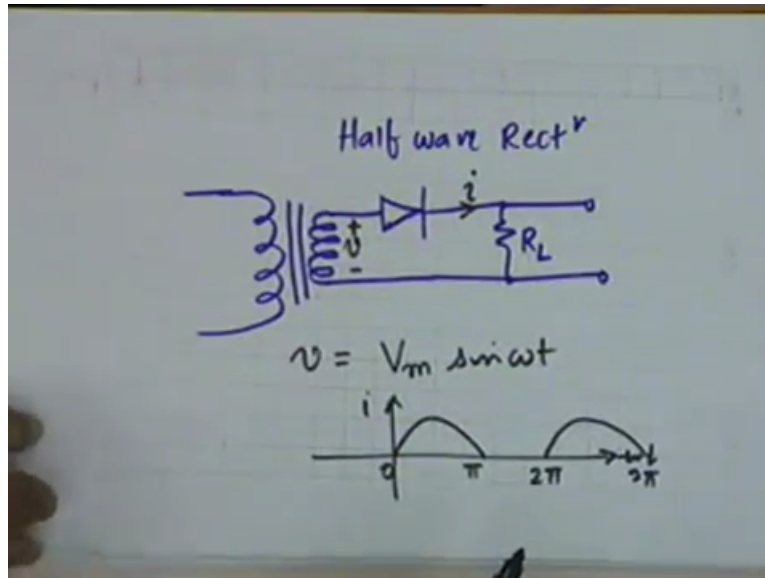 Half wave Rectʳ
i
+
v
-
R_L
v = V_m sin ωt
i
0 π 2π ωt 3π